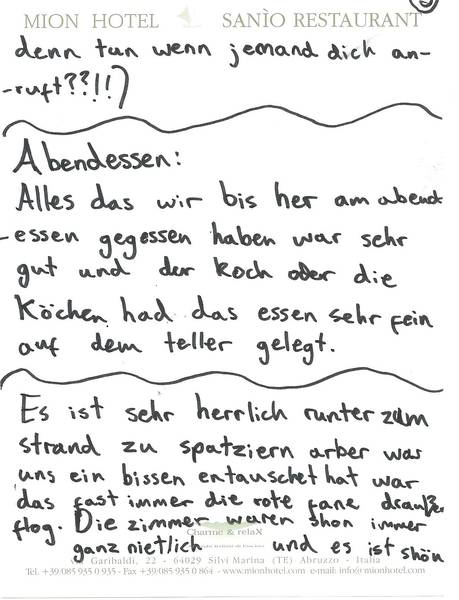 MION HOTEL SANÌO RESTAURANT
denn tun wenn jemand dich an-
-ruft??!!)
Abendessen:
Alles das wir bis her am abend
-essen gegessen haben war sehr
gut und der koch oder die
Köchen had das essen sehr fein
auf dem teller gelegt.
Es ist sehr herrlich runter zum
strand zu spatziern arber was
uns ein bissen entauschet hat war
das fast immer die rote fane draußen
flog. Die zimmer waren shon immer
Charme & relaX
ganz nietlich und es ist shön
Garibaldi, 22 - 64029 Silvi Marina (TE) Abruzzo - Italia
Tel. +39 085 935 0 935 - Fax +39 085 935 0 864 - www.mionhotel.com e-mail: info@mionhotel.com